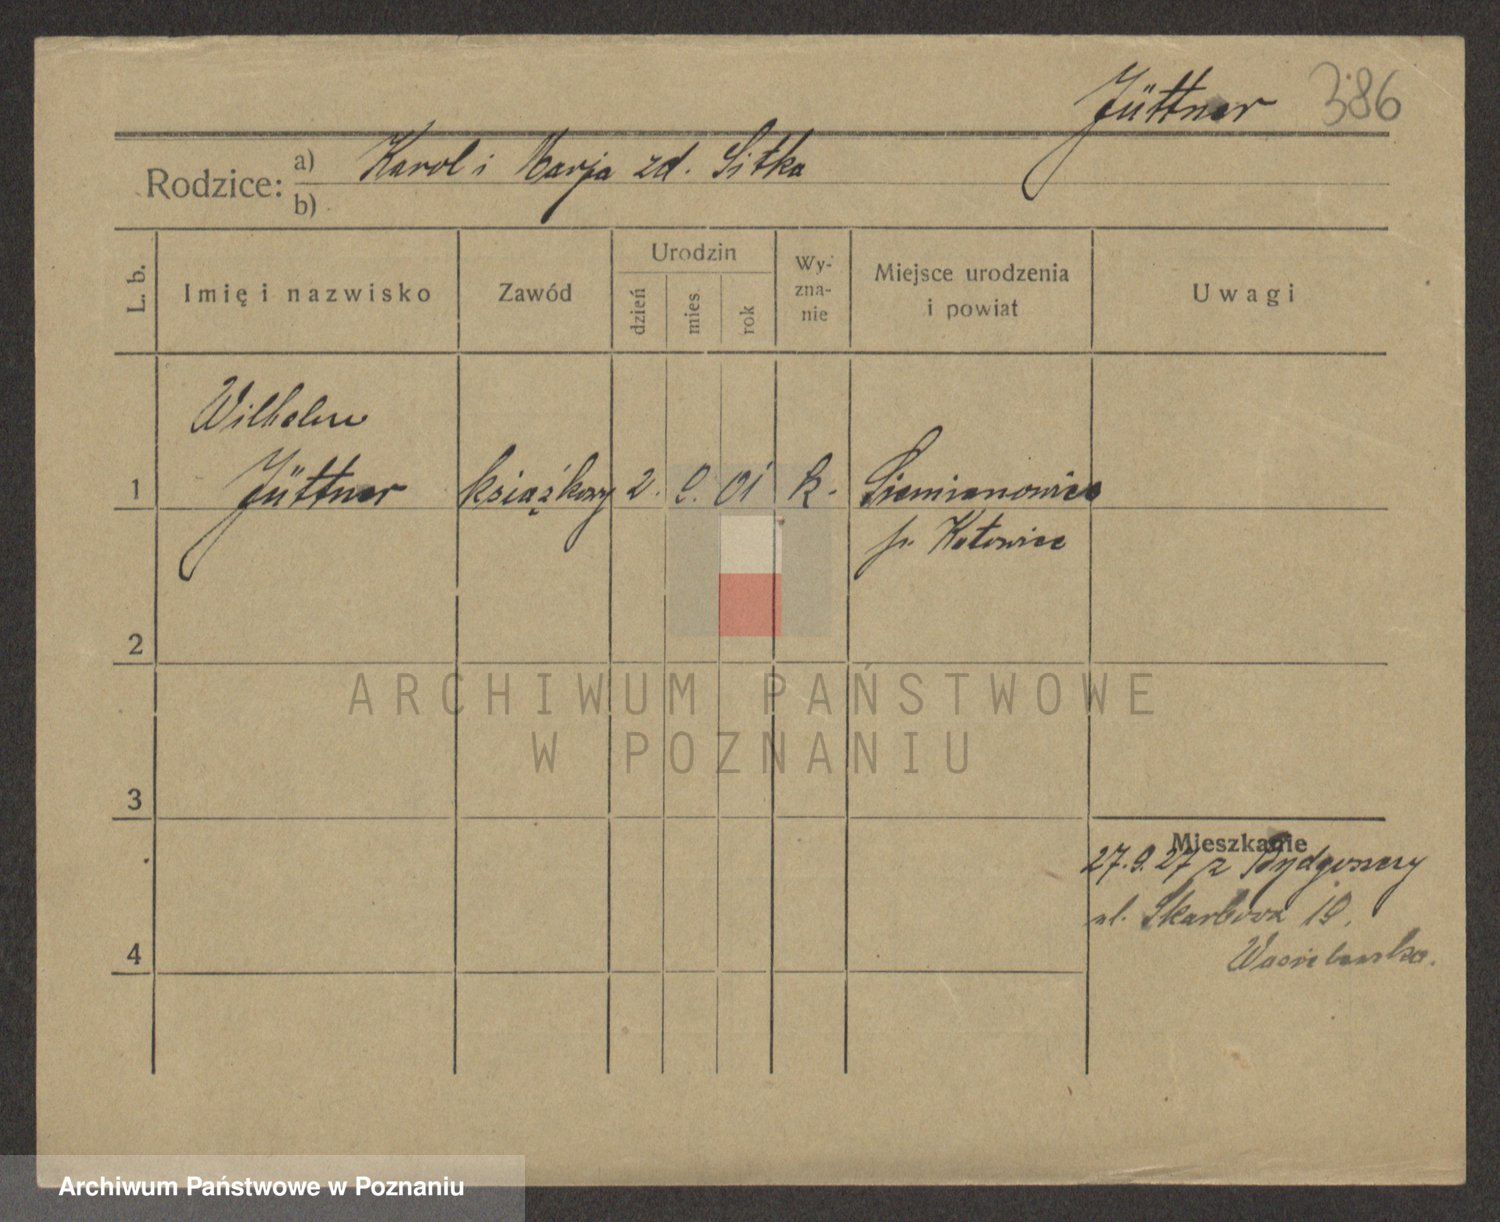 Jüttner 386
Rodzice: a) Karol i Marja zd. Sitka
b)
L. b. Imię i nazwisko Zawód Urodzin dzień mies. rok Wy-zna-nie Miejsce urodzenia i powiat Uwagi
Wilhelm
1 Jüttner książkowy 2. 9. 01 k. Siemianowice
p. Katowice
2
ARCHIWUM PAŃSTWOWE
W POZNANIU
3
Mieszkanie
27.9.27 z Bydgoszczy
ul. Skarbowa 19.
4
Archiwum Państwowe w Poznaniu